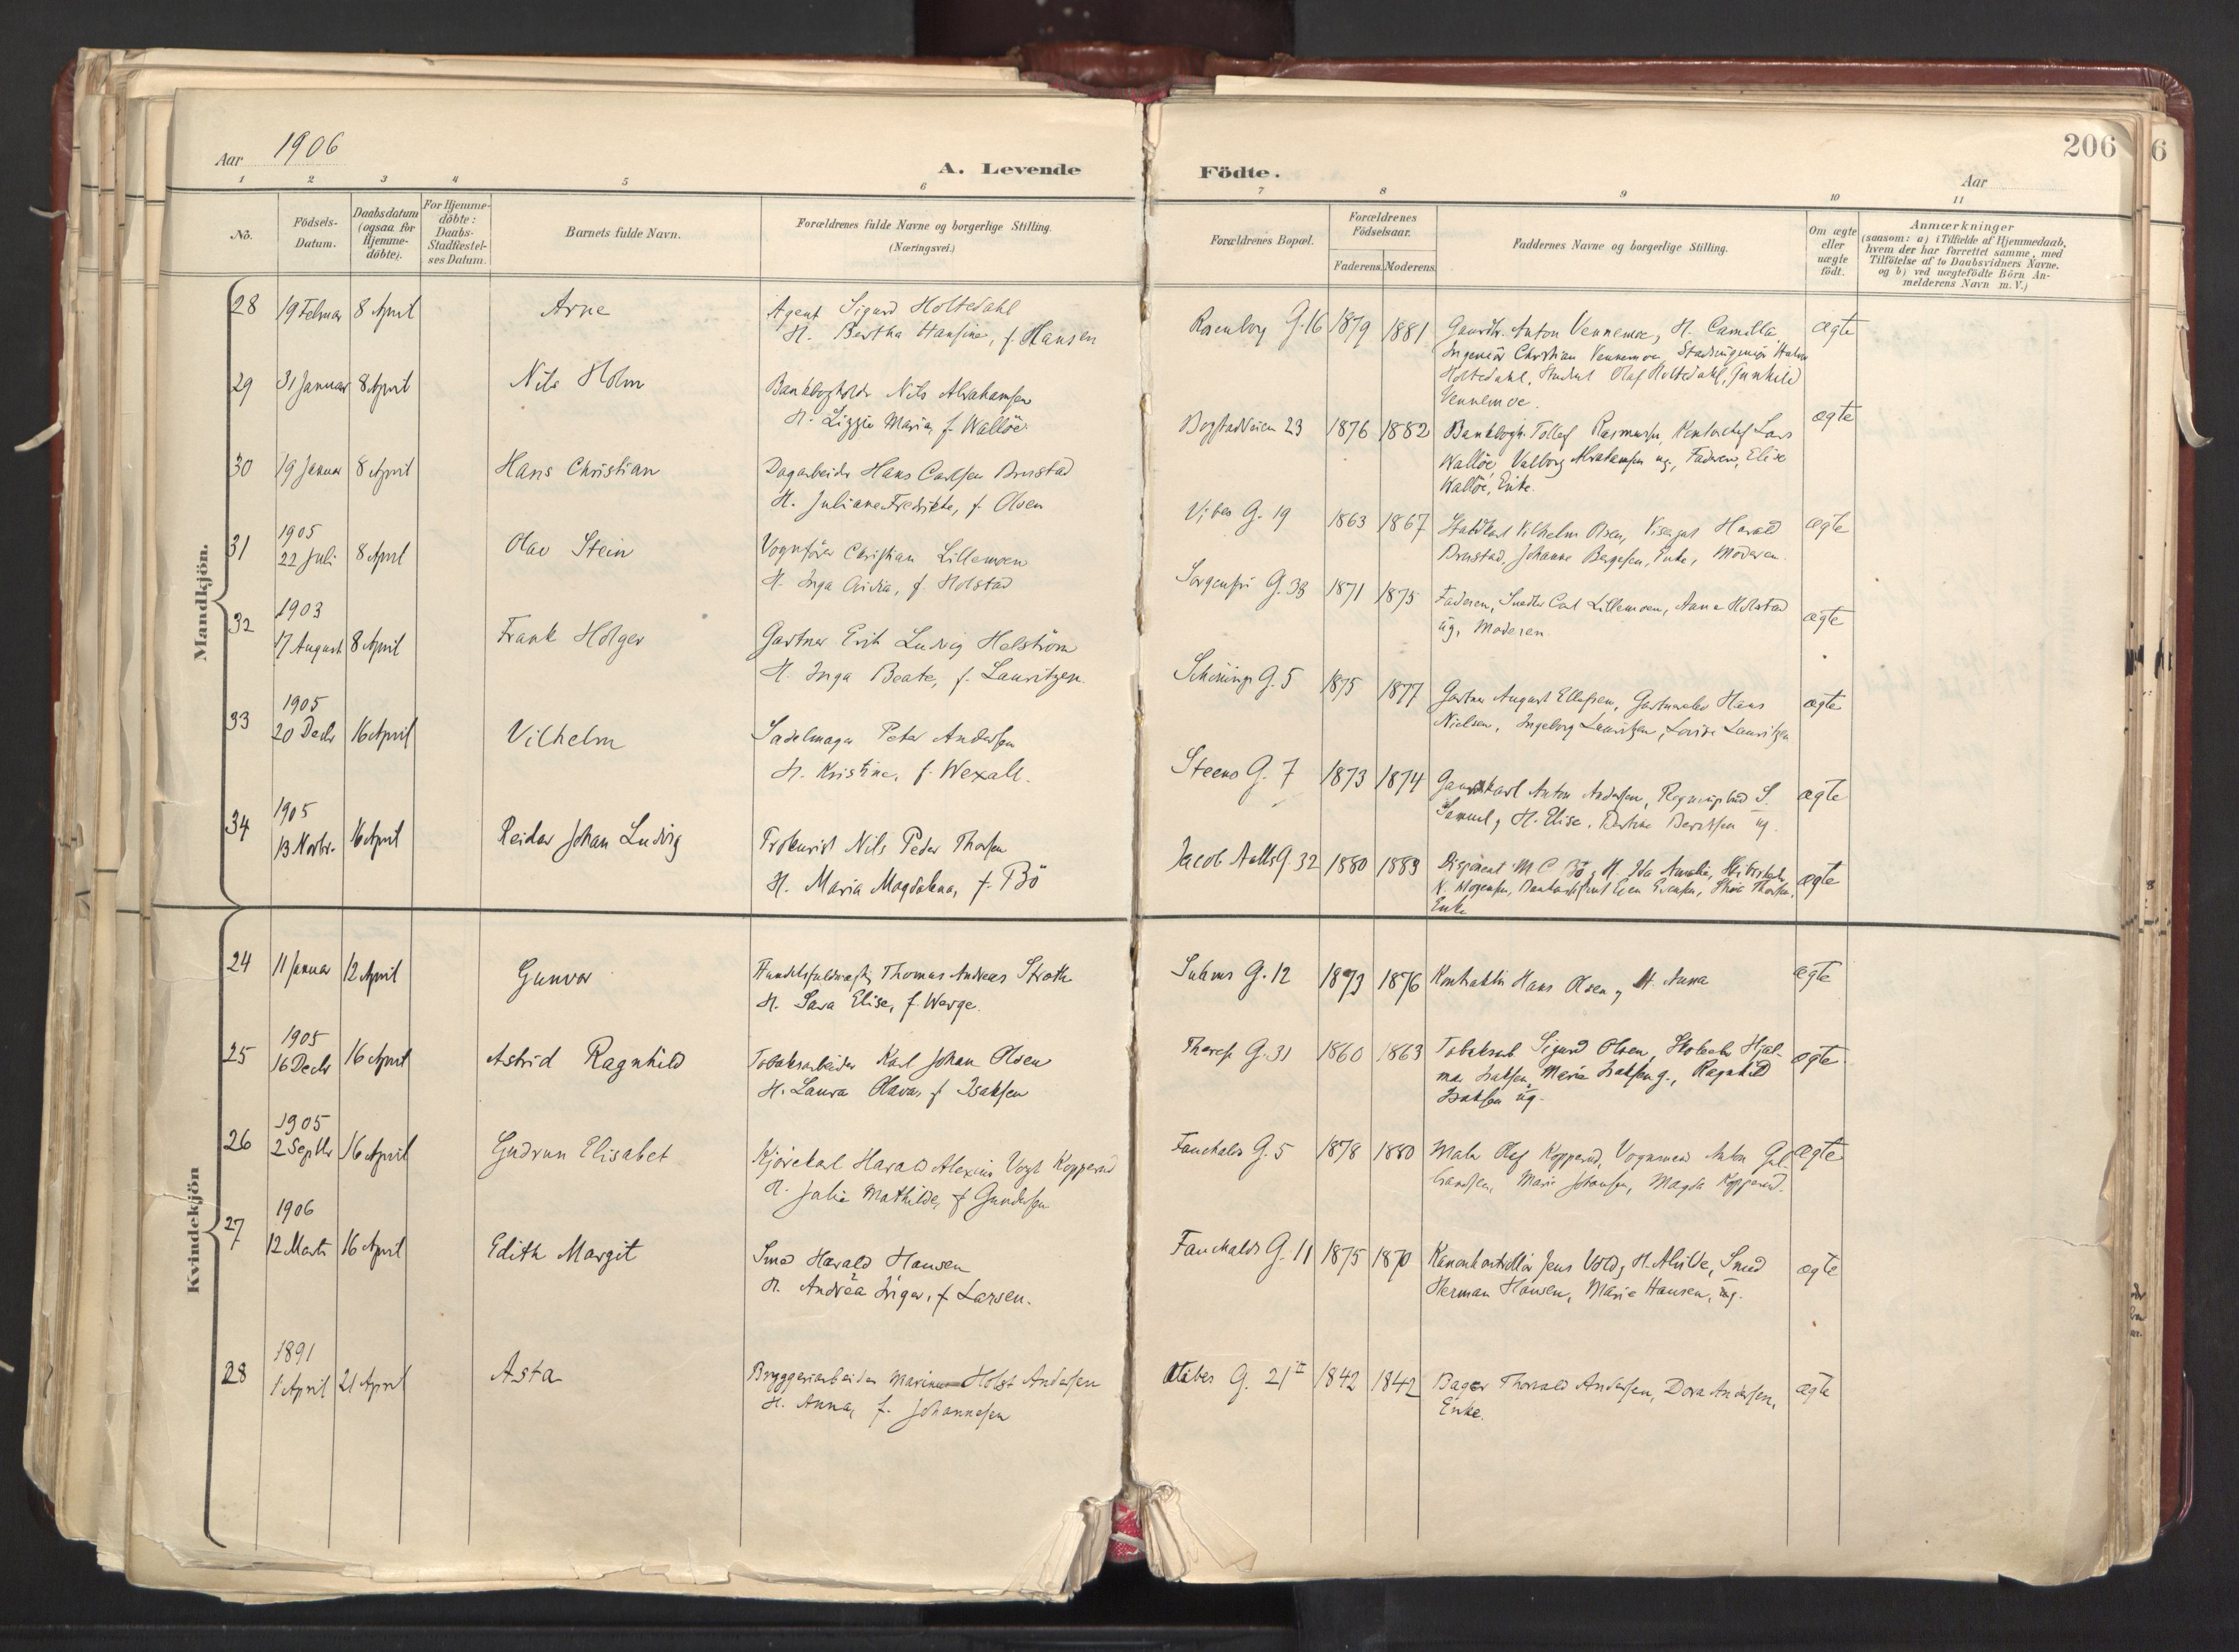 Aar 1906
A. Levende
Födte.
206
6
Aar
1 2 3 4 5 6 7 8 9 10 11
No.
Födsels-
Datum.
Daabsdatum
(ogsaa for
Hjemme-
döbte).
For Hjemme-
döbte:
Daabs-
Stadfæstel-
ses Datum.
Barnets fulde Navn.
Forældrenes fulde Navne og borgerlige Stilling.
(Næringsvei.)
Forældrenes Bopæl.
Forældrenes
Födselsaar.
Faderens. Moderens.
Faddernes Navne og borgerlige Stilling.
Om ægte
eller
uægte
födt.
Anmærkninger
(saasom: a) i Tilfælde af Hjemmedaab,
hvem der har forrettet samme, med
Tilföielse af to Daabsvidners Navne,
og b) ved uægtefödte Börn An-
melderens Navn m. V.)
Mandkjön.
28 19 Februar 8 April Arne Agent Sigurd Holtedahl
H. Bertha Hansine, f. Hansen
Rosenborg G. 16 1879 1881 Gaardbr. Anton Vennemoe, H. Camilla ægte
Ingeniör Christian Vennemoe, Stadsingeniör
Holtedahl, Student Olaf Holtedahl, Gunhild
Vennemoe.
29 31 Januar 8 April Nils Holm Bankbogholder Nils Abrahamsen
H. Lizzie Maria, f. Wallöe
Bogstadveien 23 1876 1882 Bankbogh. Tollef Rasmussen, Lars ægte
Wallöe, Valborg Abrahamsen ug., Faderen, Elise
Wallöe, Enke.
30 19 Januar 8 April Hans Christian Dagarbeider Hans Carlsen Brustad
H. Juliane Fredrikke, f. Olsen
Vibes G. 19 1863 1867 Staldkarl Vilhelm Olsen, Visergut Harald ægte
Brustad, Johanne Bergesen, Enke, Moderen.
31 1905
22 Juli 8 April Olav Stein Vognförer Christian Lillemoen
H. Inga, f. Holstad
Sorgenfri G. 38 1871 1875 Faderen, Snedker Carl Lillemoen, Anna Holstad ægte
ug, Moderen.
32 1903
17 August 8 April Frank Holger Gartner Erik Ludvig Helström
H. Inga Beate, f. Lauritzen.
Schönings G. 5 1875 1877 Gartner August Ellefsen, Hans ægte
Nielsen, Ingeborg Lauritzen, Lovise Lauritzen
33 1905
20 Decbr 16 April Vilhelm Sadelmager Peter Andersen
H. Kristine, f. Wexall.
Steens G. 7 1873 1874 Gaardskarl Anton Andersen, S. ægte
Samuel, H. Elise, Berntsen ug.
34 1905
13 Novbr. 16 April Reidar Johan Ludvig Prokurist Nils Peder Thorsen
H. Maria Magdalena, f. Bö
Jacob Aalls G. 32 1880 1883 Disponent M C Bö, H. Ida Amalia, ægte
Bankassistent Even Evensen, Thorsen,
Enke
Kvindekjön
24 11 Januar 12 April Gunvor Handelsfuldmægtig Thomas Andreas Stroth
H. Sara Elise, f. Werge.
Suhms G. 12 1873 1876 Kontorist Hans Olsen, H. Anna ægte
25 1905
16 Decbr 16 April Astrid Ragnhild Tobaksarbeider Karl Johan Olsen
H. Laura Olava, f Isaksen
Theres G. 31 1860 1863 Tobaksarb Sigurd Olsen, Hjal- ægte
mar Isaksen, Maria Isaksen g., Ragnhild
Isaksen ug.
26 1905
2 Septbr 16 April Gudrun Elisabet Kjörekarl Harald Alexius Vogt Kopperud
H. Julie Mathilde, f Gundersen
Fauchalds G. 5 1878 1880 Maler Olaf Kopperud, Vognmand Anton Gul- ægte
brandsen, Marie Johansen, Magda Kopperud.
27 1906
12 Marts 16 April Edith Margit Smed Harald Hansen
H. Andrea Inger, f Larsen.
Fauchalds G. 11 1875 1870 Kanonkontrollör Jens Vold, H. Alvilde, Smed ægte
Herman Hansen, Marie Hansen, ug.
28 1891
1 April 21 April Asta Bryggeriarbeider Marinus Holst Andersen
H. Anna, f. Johannesen
Vibes G. 21 II 1842 1842 Bager Thorvald Andersen, Dora Andersen, ægte
Enke.